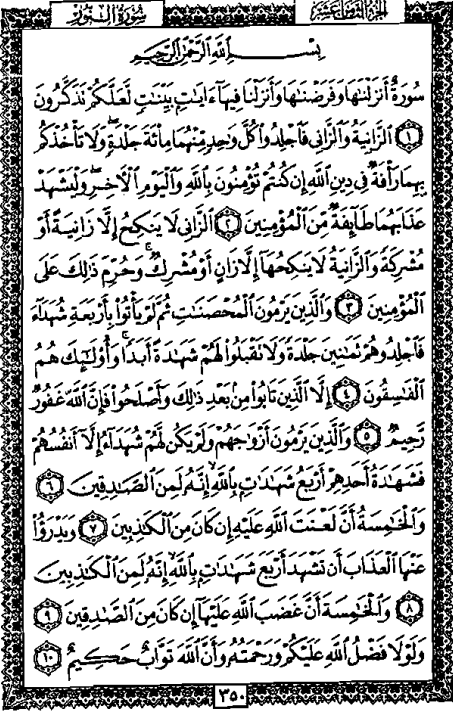 سُورَةُ النُّورِ
الجُزءُ الثَّامِنَ عَشَرَ
بِسْمِ ٱللَّهِ ٱلرَّحْمَٰنِ ٱلرَّحِيمِ
سُورَةٌ أَنزَلْنَٰهَا وَفَرَضْنَٰهَا وَأَنزَلْنَا فِيهَآ ءَايَٰتٍۭ بَيِّنَٰتٍ لَّعَلَّكُمْ تَذَكَّرُونَ
١ ٱلزَّانِيَةُ وَٱلزَّانِى فَٱجْلِدُوا۟ كُلَّ وَٰحِدٍ مِّنْهُمَا مِا۟ئَةَ جَلْدَةٍ ۖ وَلَا تَأْخُذْكُم
بِهِمَا رَأْفَةٌ فِى دِينِ ٱللَّهِ إِن كُنتُمْ تُؤْمِنُونَ بِٱللَّهِ وَٱلْيَوْمِ ٱلْءَاخِرِ ۖ وَلْيَشْهَدْ
عَذَابَهُمَا طَآئِفَةٌ مِّنَ ٱلْمُؤْمِنِينَ ٢ ٱلزَّانِى لَا يَنكِحُ إِلَّا زَانِيَةً أَوْ
مُشْرِكَةً وَٱلزَّانِيَةُ لَا يَنكِحُهَآ إِلَّا زَانٍ أَوْ مُشْرِكٌ ۚ وَحُرِّمَ ذَٰلِكَ عَلَى
ٱلْمُؤْمِنِينَ ٣ وَٱلَّذِينَ يَرْمُونَ ٱلْمُحْصَنَٰتِ ثُمَّ لَمْ يَأْتُوا۟ بِأَرْبَعَةِ شُهَدَآءَ
فَٱجْلِدُوهُمْ ثَمَٰنِينَ جَلْدَةً وَلَا تَقْبَلُوا۟ لَهُمْ شَهَٰدَةً أَبَدًا ۚ وَأُو۟لَٰٓئِكَ هُمُ
ٱلْفَٰسِقُونَ ٤ إِلَّا ٱلَّذِينَ تَابُوا۟ مِنۢ بَعْدِ ذَٰلِكَ وَأَصْلَحُوا۟ فَإِنَّ ٱللَّهَ غَفُورٌ
رَّحِيمٌ ٥ وَٱلَّذِينَ يَرْمُونَ أَزْوَٰجَهُمْ وَلَمْ يَكُن لَّهُمْ شُهَدَآءُ إِلَّآ أَنفُسُهُمْ
فَشَهَٰدَةُ أَحَدِهِمْ أَرْبَعُ شَهَٰدَٰتٍۭ بِٱللَّهِ ۙ إِنَّهُۥ لَمِنَ ٱلصَّٰدِقِينَ ٦
وَٱلْخَٰمِسَةُ أَنَّ لَعْنَتَ ٱللَّهِ عَلَيْهِ إِن كَانَ مِنَ ٱلْكَٰذِبِينَ ٧ وَيَدْرَؤُا۟
عَنْهَا ٱلْعَذَابَ أَن تَشْهَدَ أَرْبَعَ شَهَٰدَٰتٍۭ بِٱللَّهِ ۙ إِنَّهُۥ لَمِنَ ٱلْكَٰذِبِينَ
٨ وَٱلْخَٰمِسَةَ أَنَّ غَضَبَ ٱللَّهِ عَلَيْهَآ إِن كَانَ مِنَ ٱلصَّٰدِقِينَ ٩
وَلَوْلَا فَضْلُ ٱللَّهِ عَلَيْكُمْ وَرَحْمَتُهُۥ وَأَنَّ ٱللَّهَ تَوَّابٌ حَكِيمٌ ١٠
٣٥٠